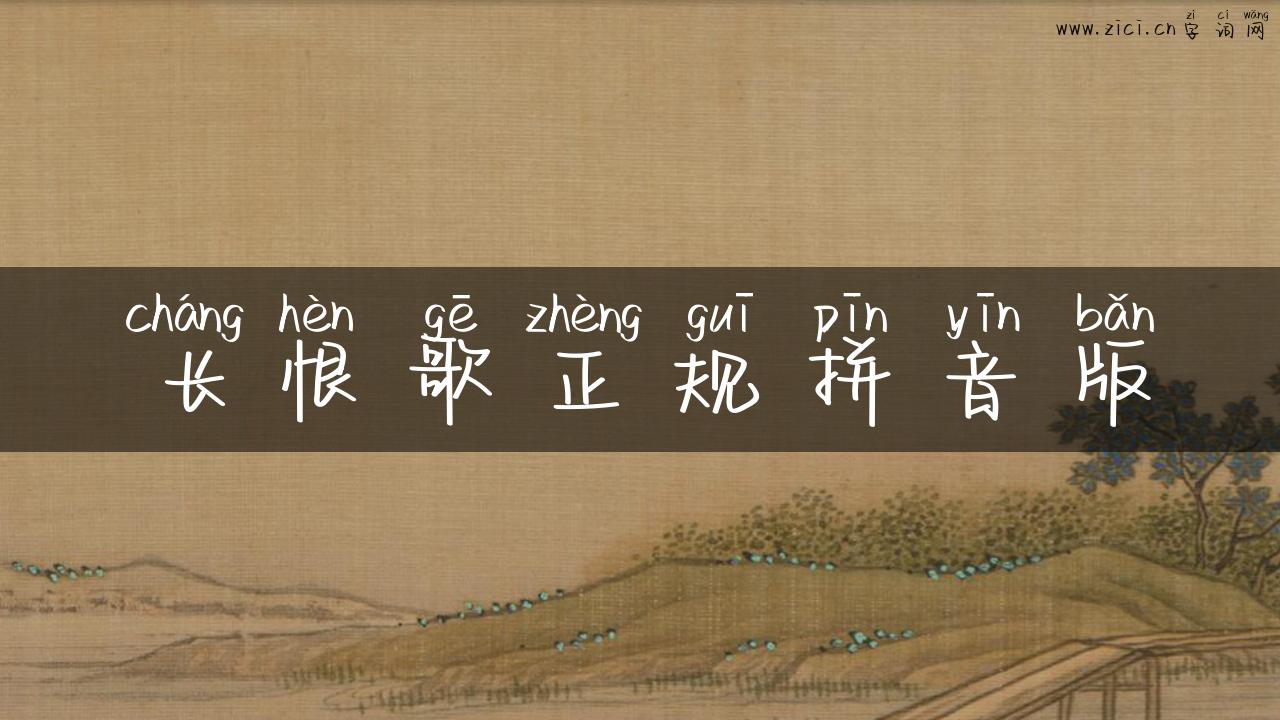 zì cí wǎng
www.zici.cn字词网
cháng hèn gē zhèng guī pīn yīn bǎn
长恨歌正规拼音版